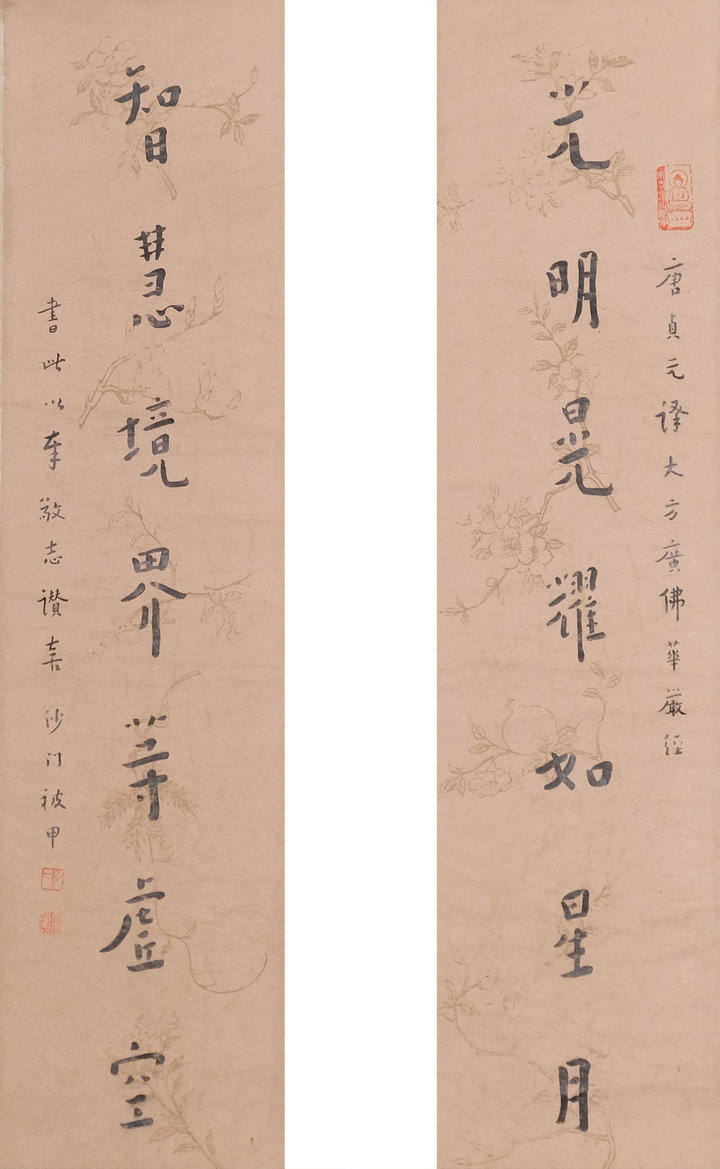 唐貞元譯大方廣佛華嚴經
光明晃耀如星月
智慧境界等虛空
書此以奉敬志讚喜 沙门被甲